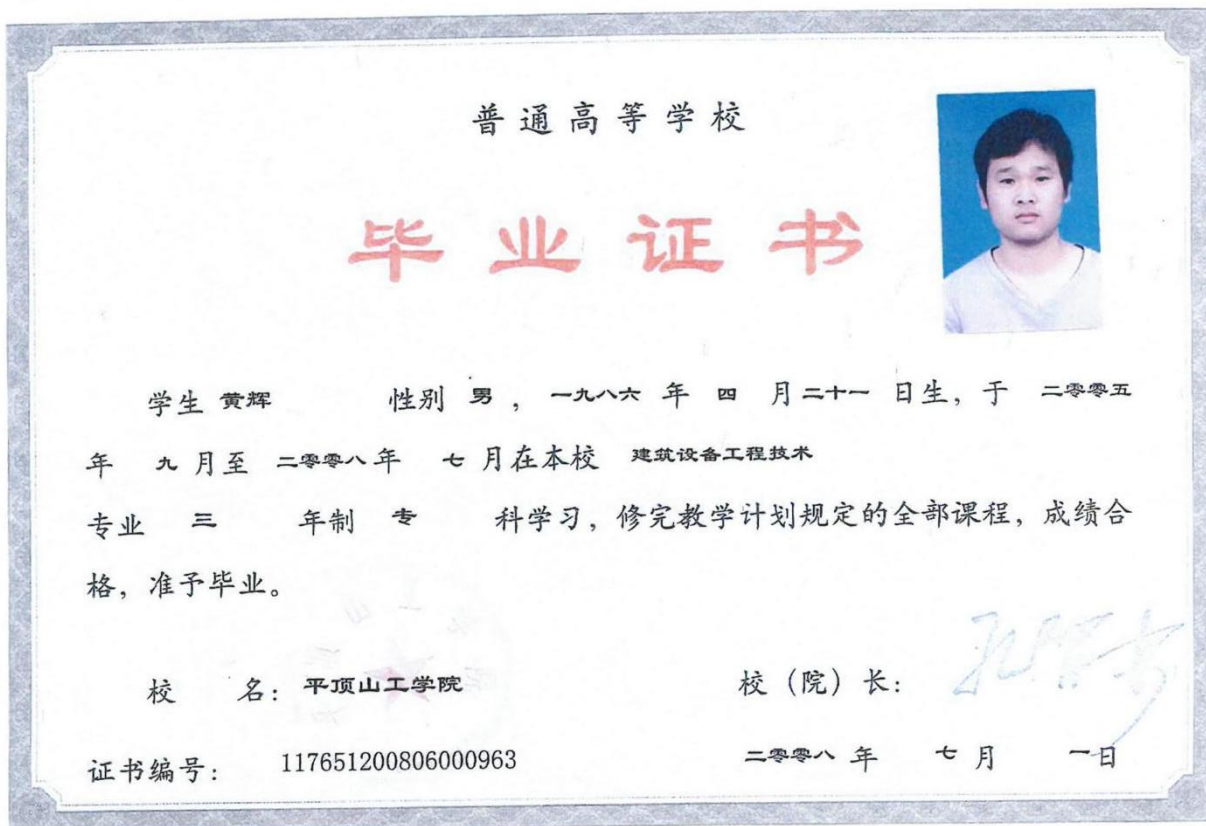 普通高等学校
毕业证书
学生 黄辉 性别 男 ， 一九八六 年 四 月 二十一 日生，于 二零零五
年 九 月至 二零零八 年 七 月在本校 建筑设备工程技术
专业 三 年制 专 科学习，修完教学计划规定的全部课程，成绩合
格，准予毕业。
校 名： 平顶山工学院 校（院）长：
证书编号： 117651200806000963 二零零八 年 七 月 一日